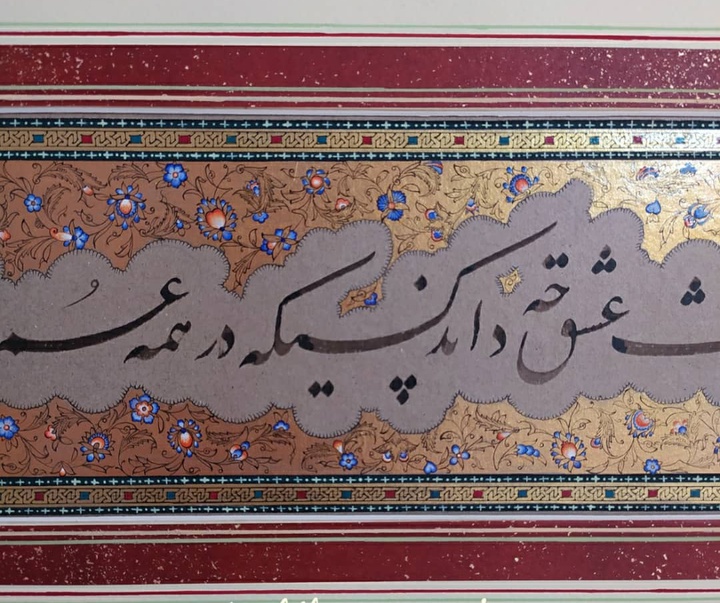 عشق چه داند کسیکه در همه